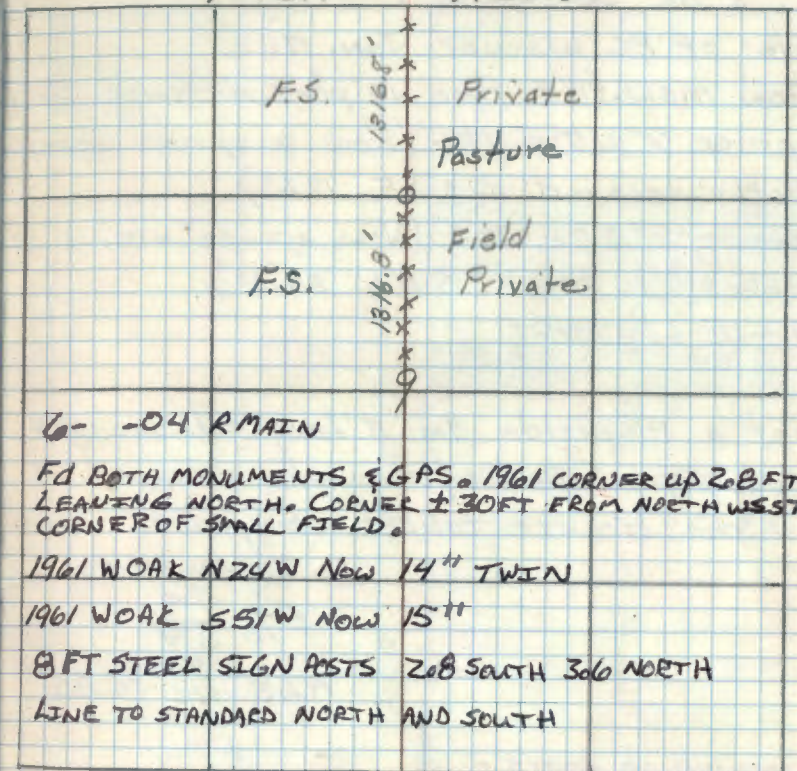 F.S.
1316.8'
Private
Pasture
F.S.
1316.8'
Field
Private
6- -04 R MAIN
Fd BOTH MONUMENTS & GPS. 1961 CORNER UP 2.8 FT
LEANING NORTH. CORNER ± 30FT FROM NORTH WEST
CORNER OF SMALL FIELD.
1961 WOAK N24W NOW 14" TWIN
1961 WOAK S51W NOW 15"
8 FT STEEL SIGN POSTS 2.8 SOUTH 3.6 NORTH
LINE TO STANDARD NORTH AND SOUTH